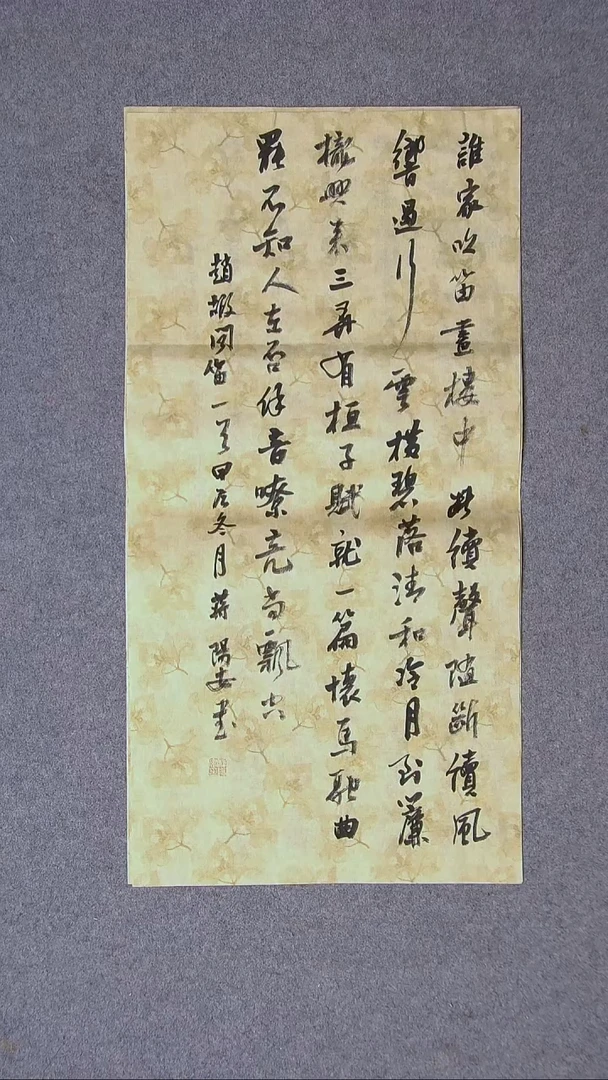 誰家吹笛畫樓中斷續聲隨斷續風
響遏行雲橫碧落清和冷月到簾
櫳興來三弄有桓子賦就一篇懷馬融曲
罷不知人在否余音嘹亮尚飄空
趙嘏聞笛一首甲辰冬月蔣陽安書